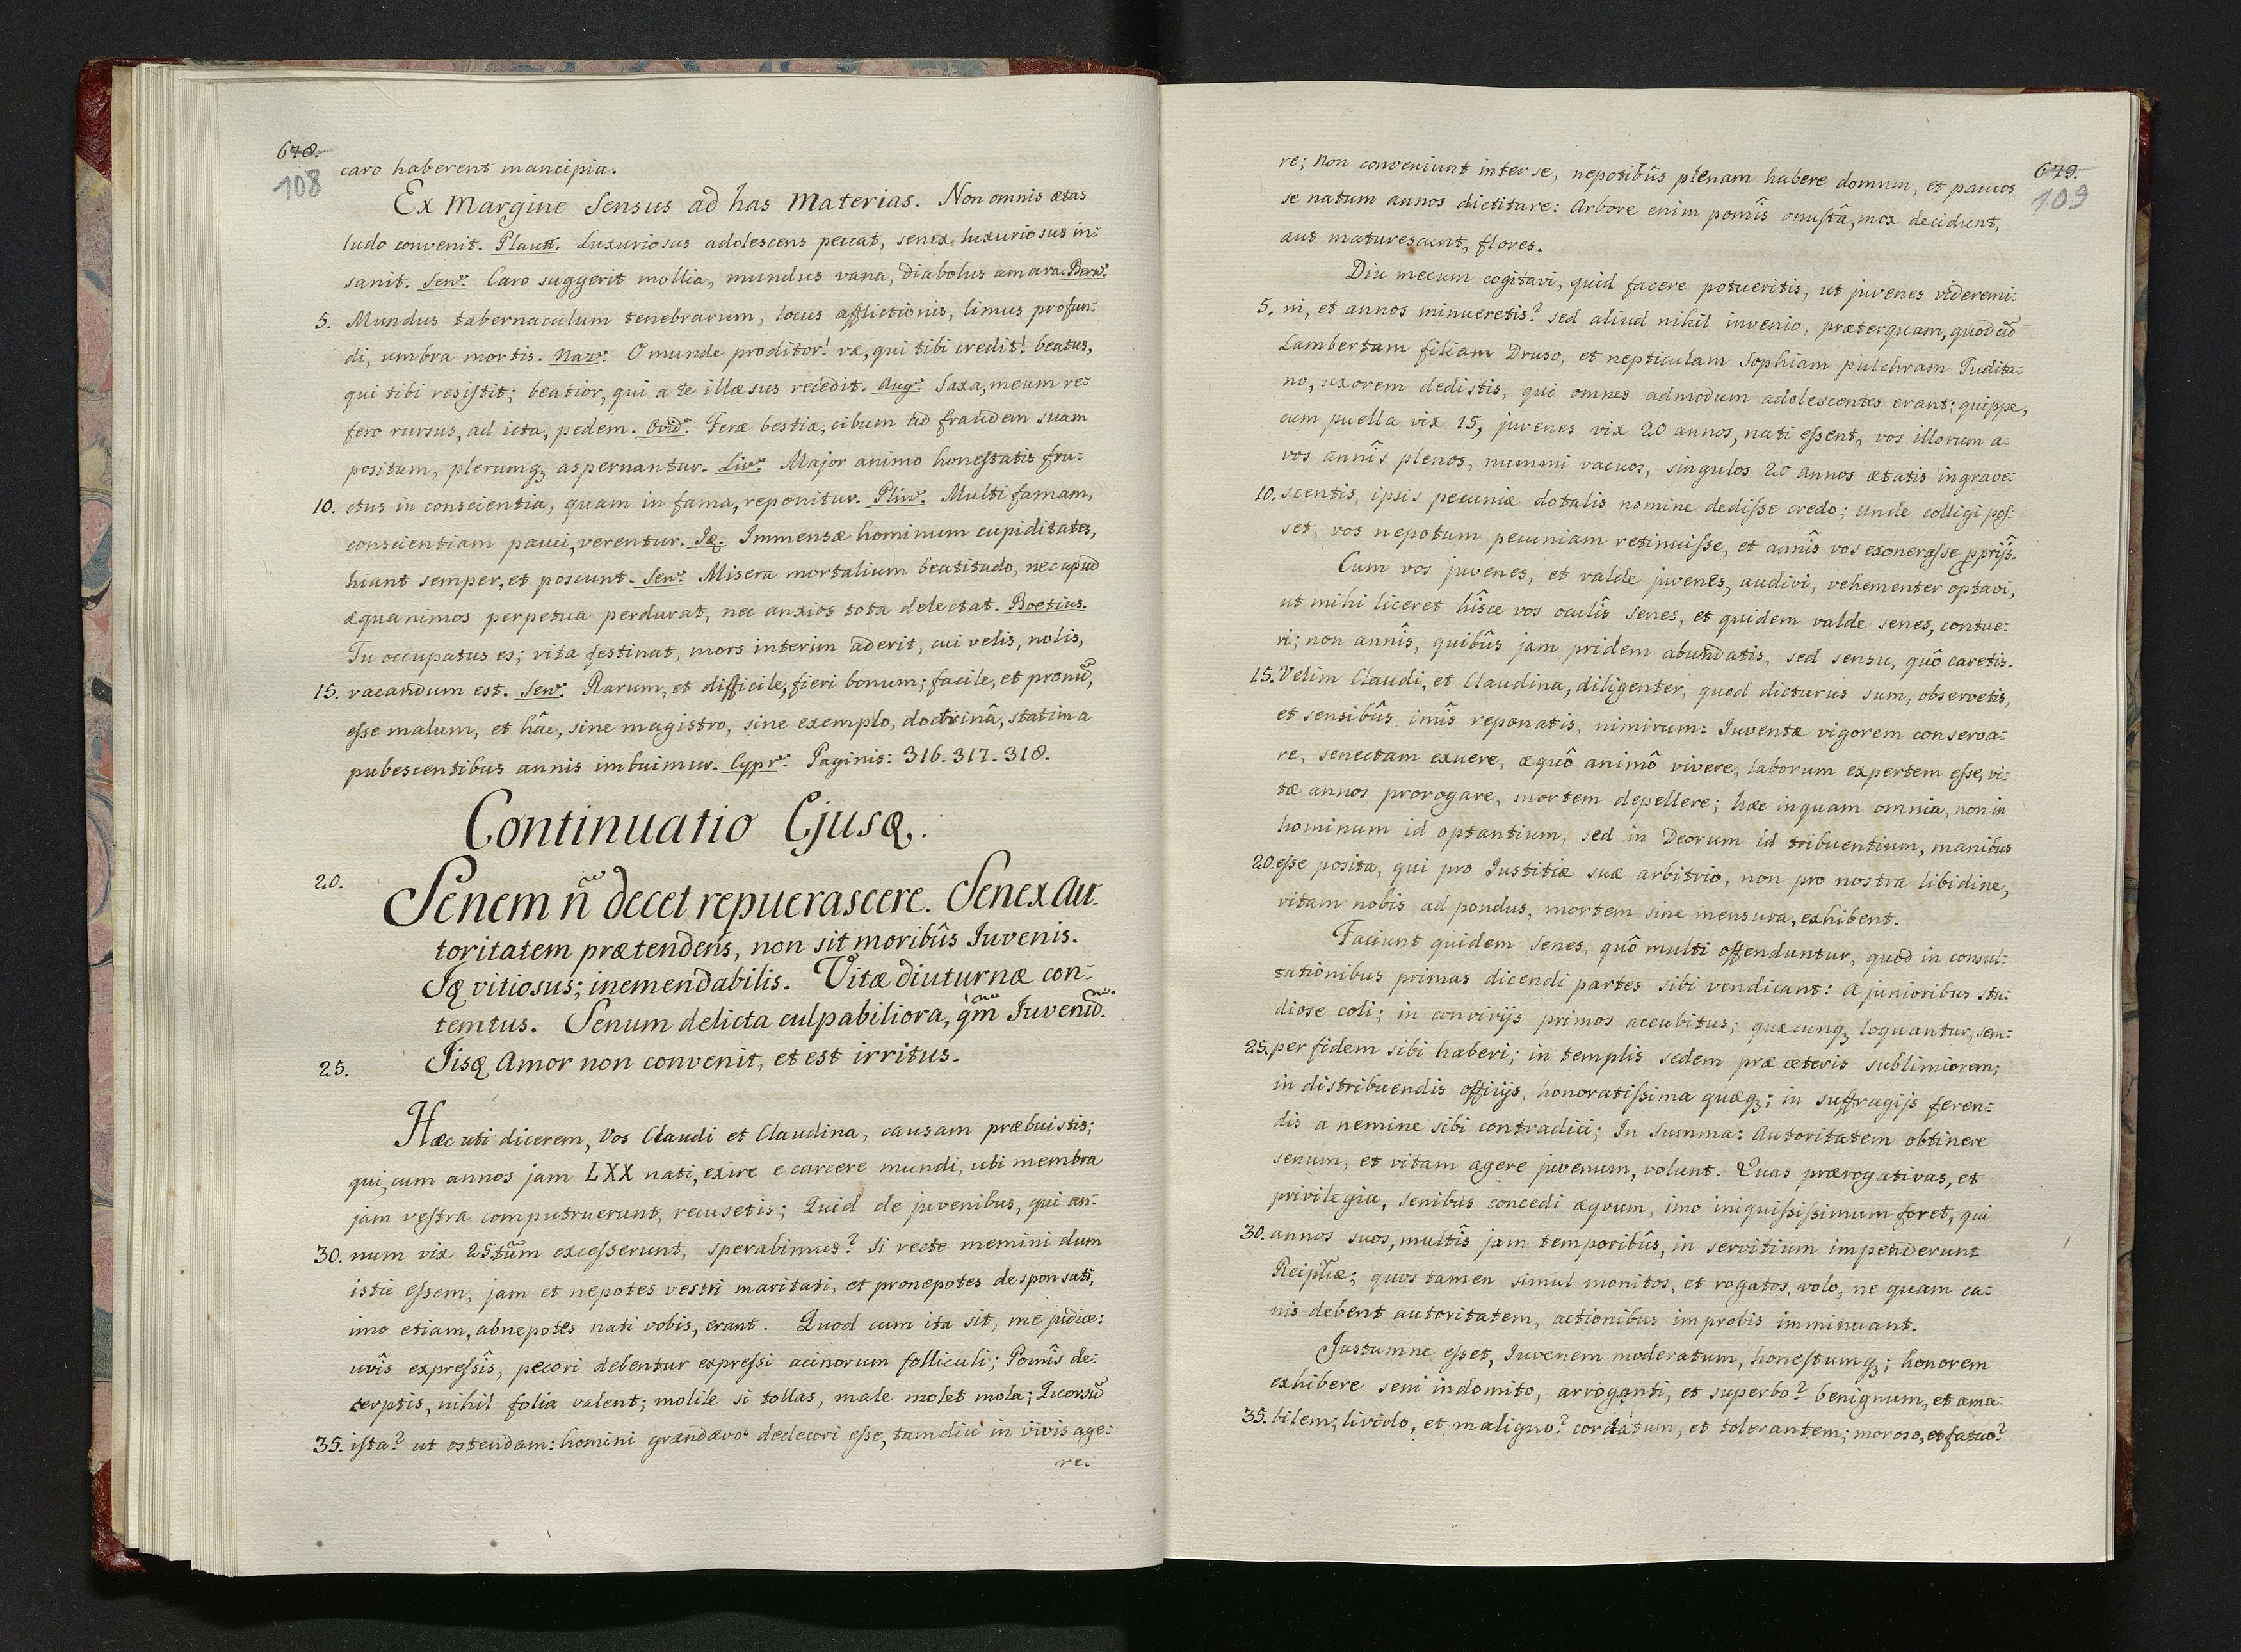 678.
108
caro haberent mancipia.
Ex Margine Sensus ad has Materias. Non omnis ætas
ludo convenit. Plaut: Luxuriosus adolescens peccat, senex luxuriosus in:
sanit. Sen: Caro suggerit mollia, mundus vana, Diabolus amara. Bern:
5. Mundus tabernaculum tenebrarum, locus afflictionis, limus profun:
di, umbra mortis. Naz: O munde proditor! væ, qui tibi credit! beatus,
qui tibi resistit; beatior, qui a te illæsus recedit. Aug: Saxa, meum re:
fero rursus, ad icta, pedem. Ovid: Feræ bestiæ, cibum ad fraudem suam
positum, plerumqꝫ aspernantur. Liv: Major animo honestatis fru:
10. ctus in conscientia, quam in fama, reponitur. Plin: Multi famam,
conscientiam pauci, verentur. Iꝗ: Immensæ hominum cupiditates,
hiant semper, et poscunt. Sen: Misera mortalium beatitudo, nec apud
æquanimos perpetua perdurat, nec anxios tota delectat. Boetius.
Tu occupatus es; vita festinat, mors interim aderit, cui velis, nolis,
15. vacandum est. Sen: Rarum, et difficile, fieri bonum; facile, et pronũ,
esse malum, et hâc, sine magistro, sine exemplo, doctrinâ, statim a
pubescentibus annis imbuimur. Cypr: Paginis: 316. 317. 318.
Continuatio Ejusꝗ.
20. Senem ñ decet repuerascere. Senex Au:
toritatem prætendens, non sit moribûs Iuvenis.
Iꝗ vitiosus; inemendabilis. Vitæ diuturnæ con:
temtus. Senum delicta culpabiliora, qm̀ Iuvenũ.
25. Iisꝗ Amor non convenit, et est irritus.
Hæc uti dicerem, Vos Claudi et Claudina, causam præbuistis;
qui, cum annos jam LXX nati, exire e carcere mundi, ubi membra
jam vestra computruerunt, recusetis; Quid de juvenibus, qui an:
30. num vix 25tũm excesserunt, sperabimus? si recte memini dum
istic essem, jam et nepotes vestri maritati, et pronepotes desponsati,
imo etiam, abnepotes nati vobis, erant. Quod cum ita sit, me judice:
uvîs expressîs, pecori debentur expressi acinorum folliculi; Pomîs de:
cerptis, nihil folia valent; molile si tollas, male molet mola; Quorsũ
35. ista? ut ostendam: homini grandævo dedecori esse, tamdiu in vivis age:
re.
679.
109
re; non conveniunt inter se, nepotibûs plenam habere domum, et paucos
se natum annos dictitare: Arbore enim pomîs onustâ, mox decidunt,
aut maturescunt, flores.
Diu mecum cogitavi, quid facere potueritis, ut juvenes videremi:
5. ni, et annos minueretis? sed aliud nihil invenio, præterquam, quod cũ
Lambertam filiam Druso, et nepticulam Sophiam pulchram Tudita:
no, uxorem dedistis, qui omnes admodum adolescentes erant; quippe,
cum puella vix 15, juvenes vix 20 annos, nati essent, vos illorum a:
vos annîs plenos, nummi vacuos, singulos 20 annos ætatis ingrave:
10. scentis, ipsis pecuniæ dotalis nomine dedisse credo; unde colligi pos:
set, vos nepotum pecuniam retinuisse, et annîs vos exonerasse ꝓprijs̃.
Cum vos juvenes, et valde juvenes, audivi, vehementer optavi,
ut mihi liceret hîsce vos oculîs senes, et quidem valde senes, contue:
ri; non annîs, quibûs jam pridem abundatis, sed sensu, quô caretis.
15. Velim Claudi, et Claudina, diligenter, quod dicturus sum, observetis,
et sensibûs imîs reponatis, nimirum: Iuventæ vigorem conserva:
re, senectam exuere, æquô animô vivere, laborum expertem esse, vi:
tæ annos prorogare, mortem depellere; hæc inquam omnia, non in
hominum id optantium, sed in Deorum id tribuentium, manibus
20. esse posita, qui pro Iustitiæ suæ arbitrio, non pro nostra libidine,
vitam nobis ad pondus, mortem sine mensura, exhibent.
Faciunt quidem senes, quô multi offenduntur, quod in consul:
tationibus primas dicendi partes sibi vendicant: A junioribus stu:
diose coli; in convivijs primos accubitus; quæcunqꝫ loquantur, sem:
25. per fidem sibi haberi; in templis sedem præ cæteris sublimiorem;
in distribuendis officijs, honoratissima quæqꝫ; in suffragijs feren:
dis a nemine sibi contradici; In summa: Autoritatem obtinere
senum, et vitam agere juvenum, volunt. Quas prærogativas, et
privilegia, senibus concedi æqvum, imo iniquississimum foret, qui
30. annos suos, multîs jam temporibûs, in servitium impenderunt
Reipłicæ; quos tamen simul monitos, et rogatos, volo, ne quam ca:
nis debent autoritatem, actionibus improbis imminuant.
Justumne esset, Iuvenem moderatum, honestumqꝫ; honorem
exhibere seni indomito, arroganti, et superbo? benignum, et ama:
35. bilem; livido, et maligno? cordatum, et tolerantem; moroso, et fatuo?